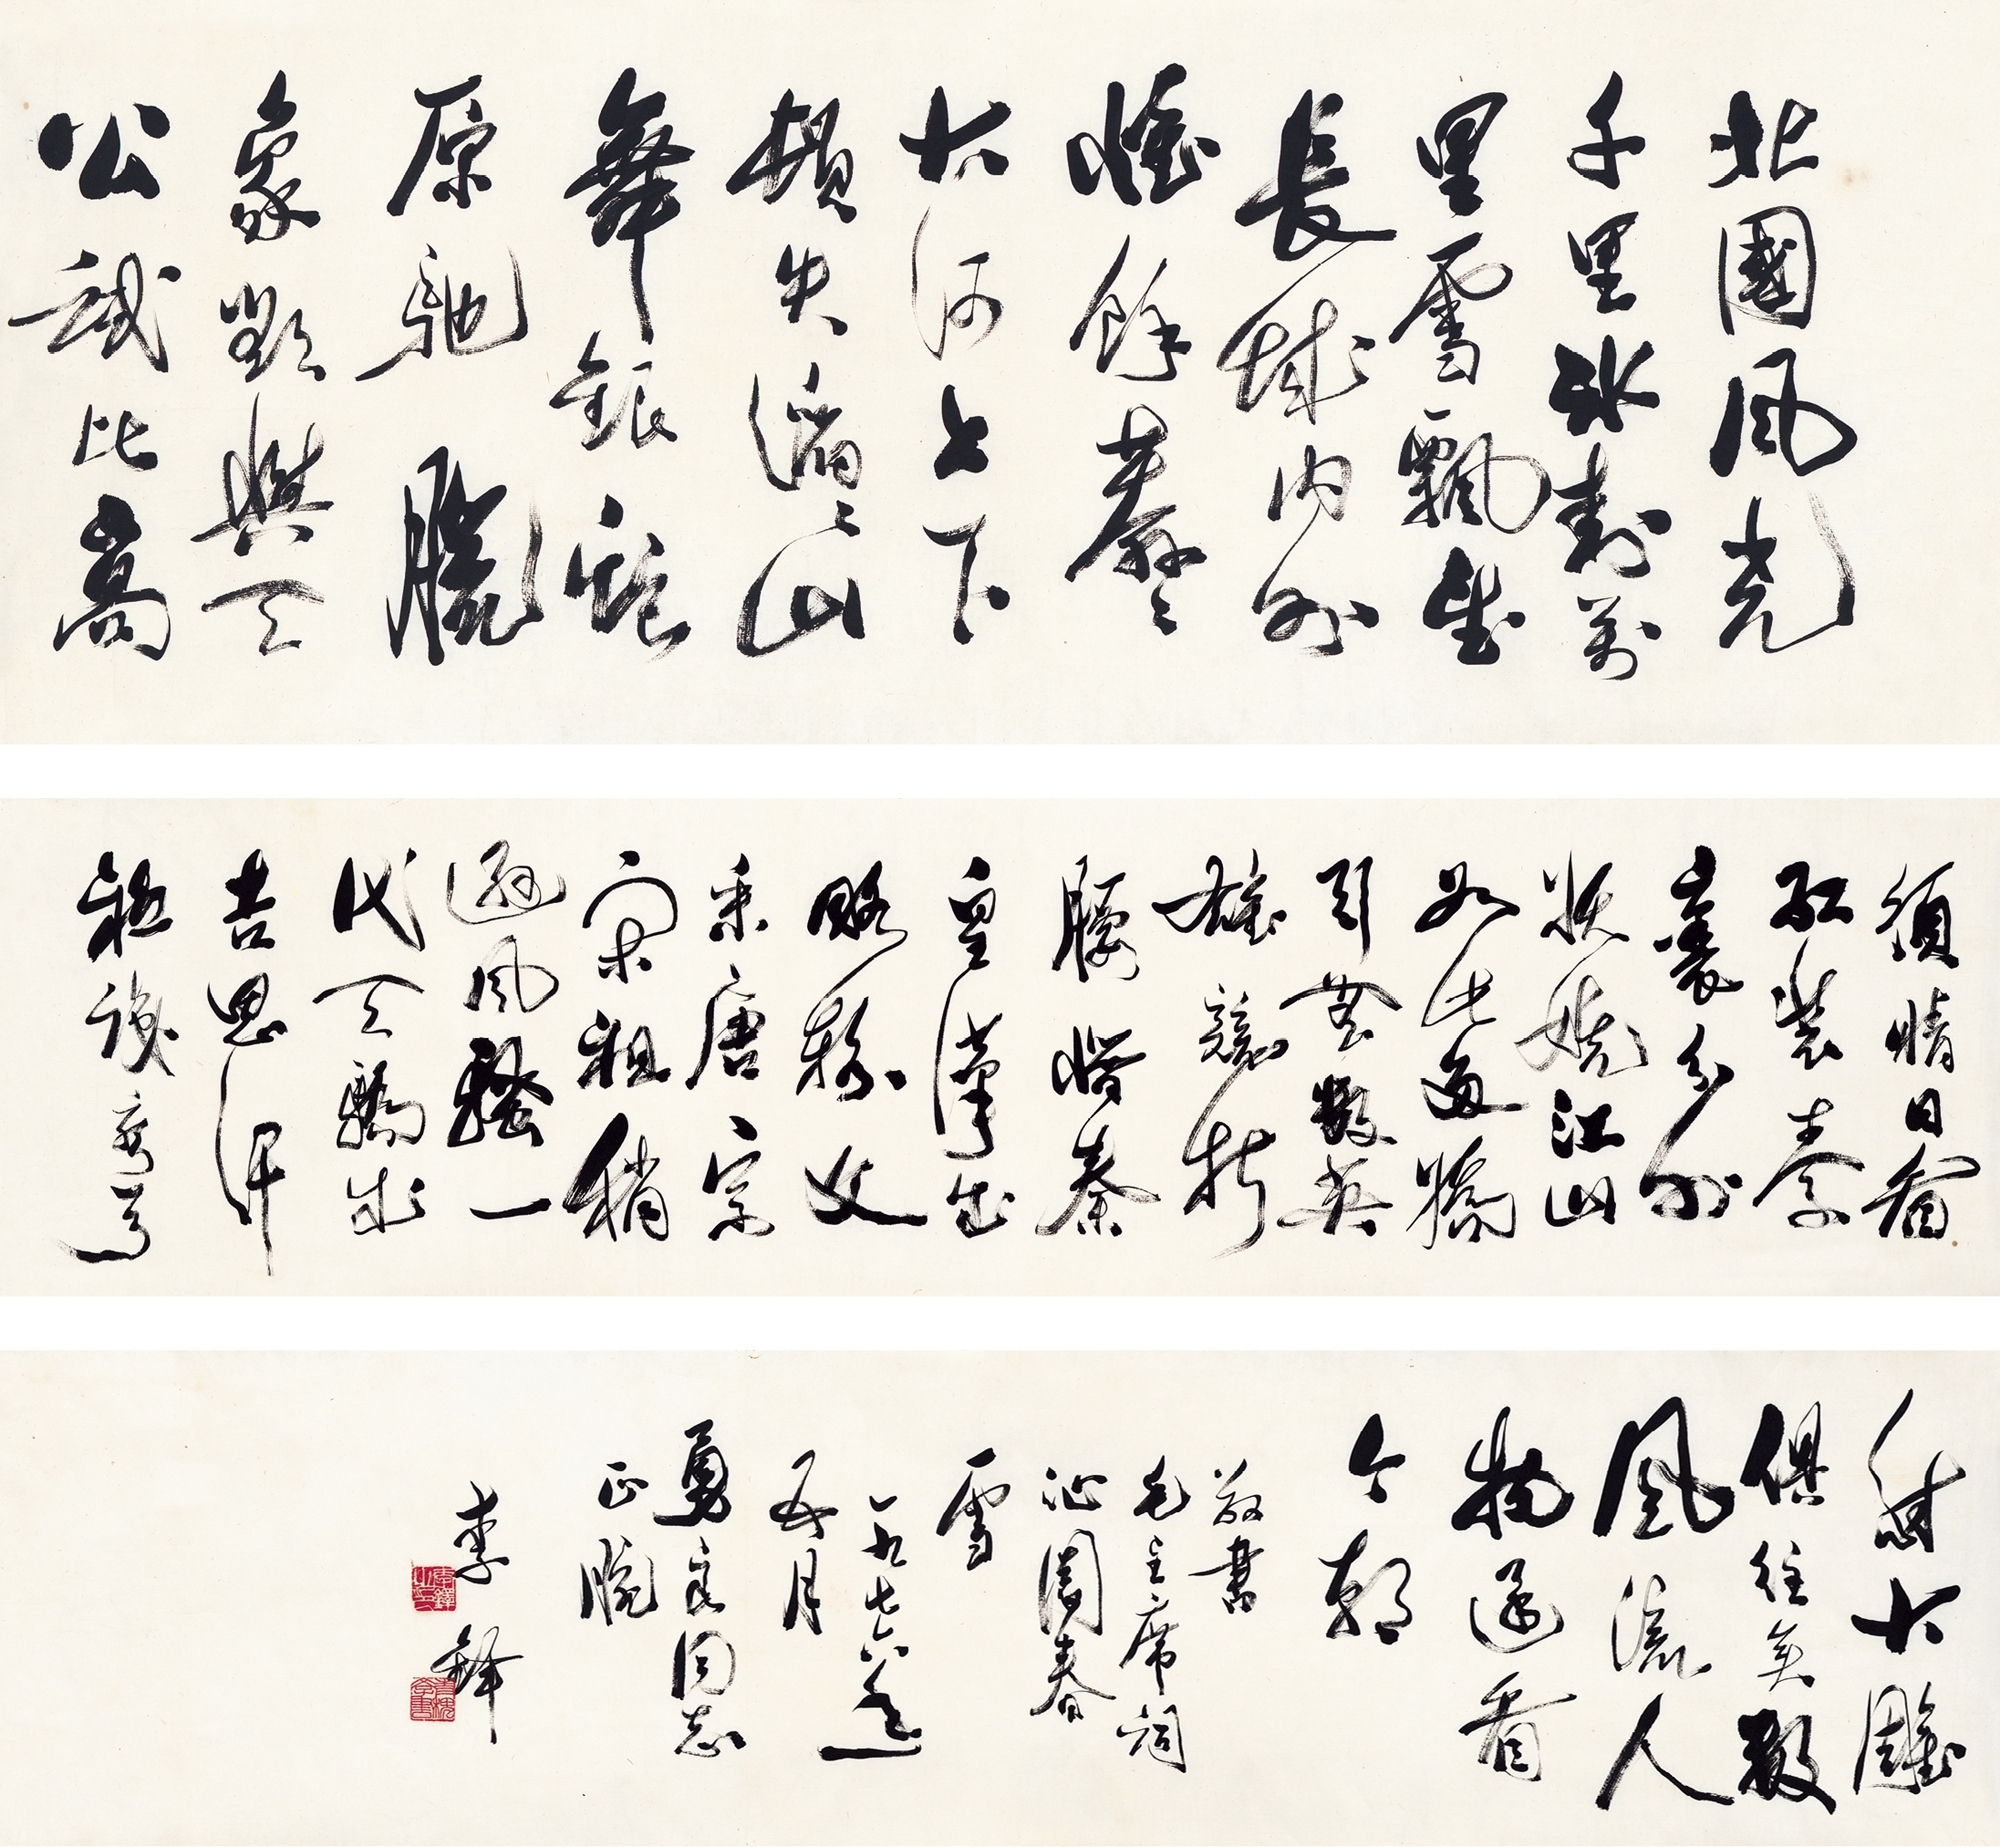 北國風光
千里冰封萬
里雪飄望
長城內外
惟餘莽〻
大河上下
頓失滔〻山
舞銀蛇
原馳臘
象欲與天
公試比高
須晴日看
紅裝素
裹分外
妖嬈江山
如此多嬌
引無數英
雄競折
腰惜秦
皇漢武
略輸文
采唐宗
宋祖稍
遜風騷一
代天驕成
吉思汗
祇識彎弓
射大雕
俱往矣數
風流人
物還看
今朝
敬書
毛主席詞
沁園春
雪
一九七六年
五月
勇良同志
正腕
李鐸